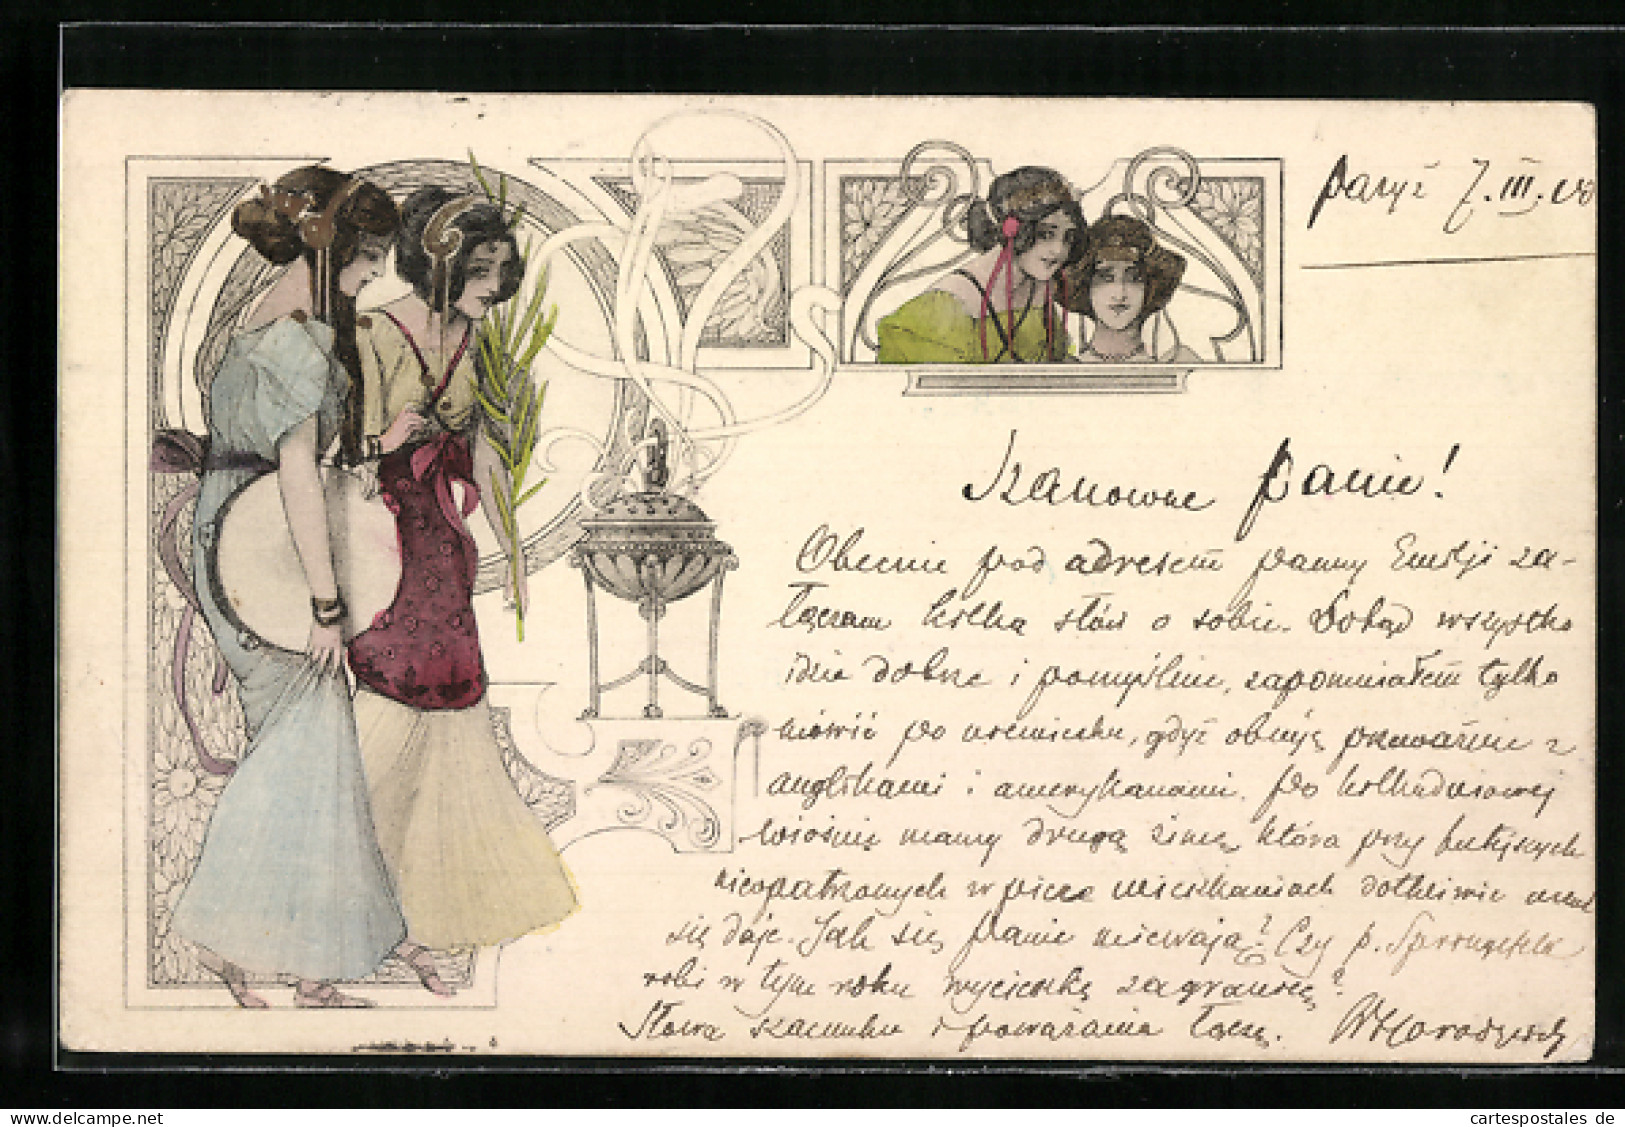 Paryż 7.III.00
Szanowne Panie!
Obecnie pod adresem Panny Emilji za-
łączam kilka słów o sobie. Dotąd wszystko
idzie dobrze i pomyślnie, zapomniałem tylko
mówić po niemiecku, gdyż obcuję przeważnie z
anglikami i amerykanami. Po kilkudniowej
wiośnie mamy drugą zimę, która przy tutejszych
nieopatrzonych w piece mieszkaniach dotkliwie
się daje. Jak się Panie miewają? Czy p.
robi w tym roku wycieczkę zagranicę?
Słowa szacunku i poważania łączę.
cartespostales de